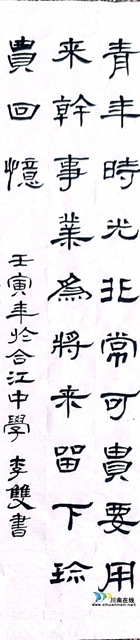 青年時光非常可貴要用
来幹事業為將来留下珎
貴回憶
壬寅年於合江中學 李雙書
川南在线
www.chuannan.net